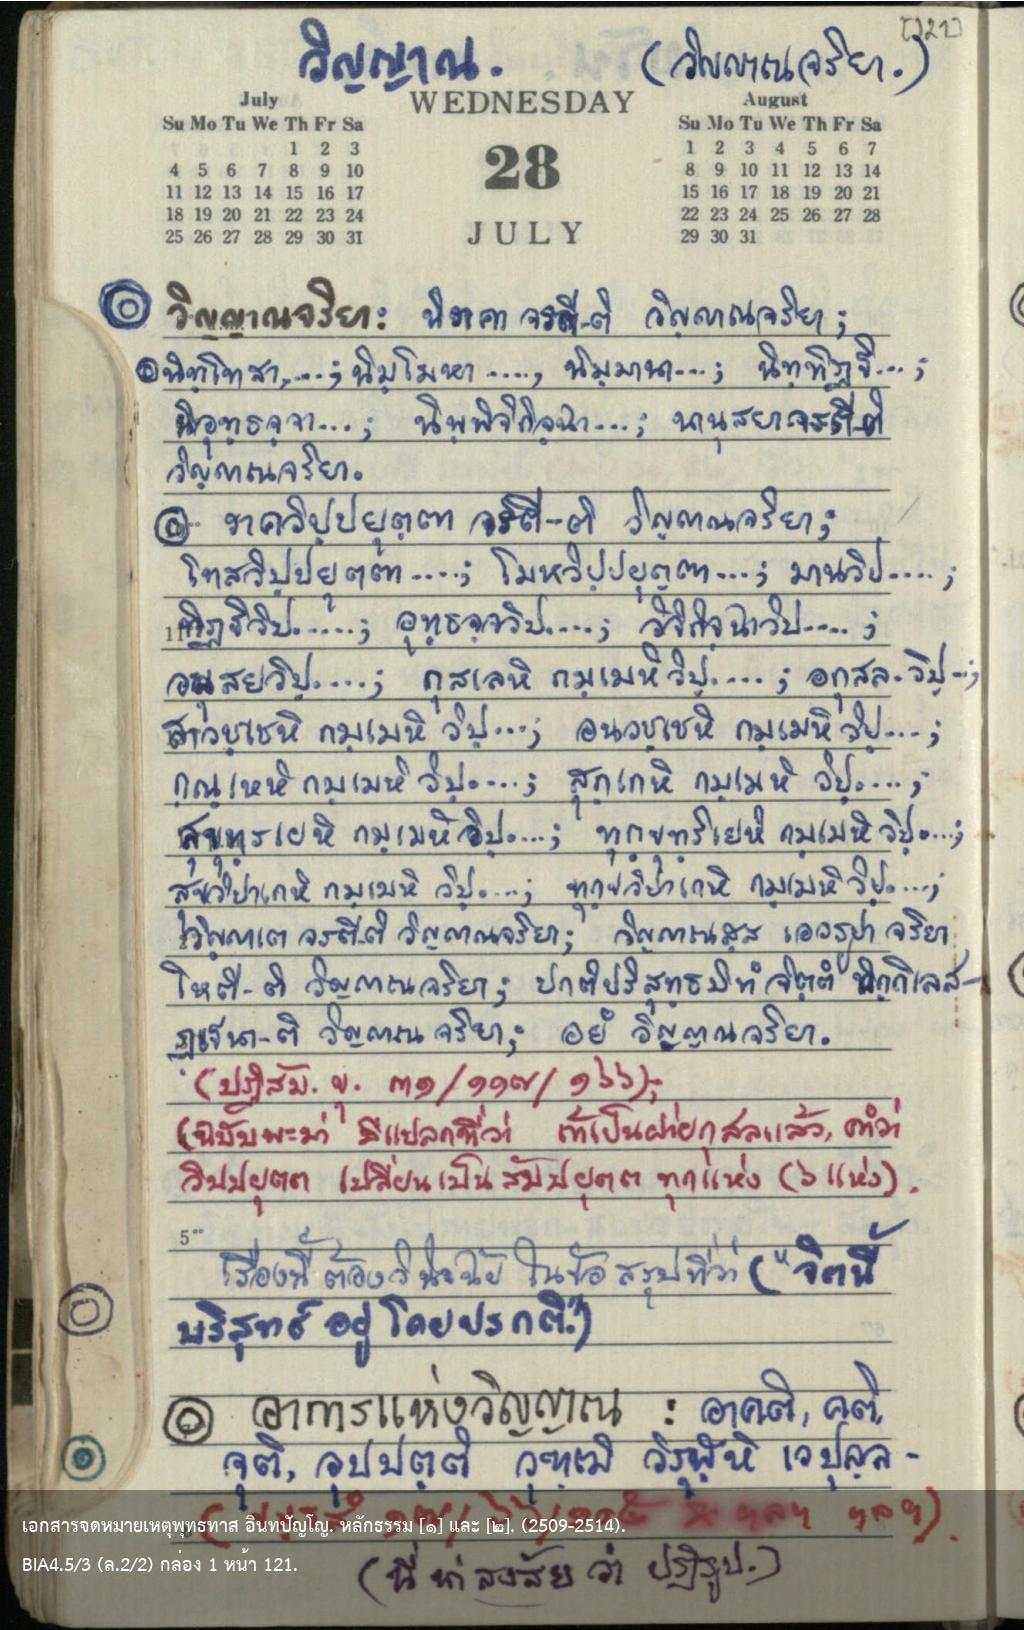 [121]
วิญฺญาณ. (วิญฺญาณจริยา.)
July WEDNESDAY August
Su Mo Tu We Th Fr Sa 28 Su Mo Tu We Th Fr Sa
1 2 3 JULY 1 2 3 4 5 6 7
4 5 6 7 8 9 10 8 9 10 11 12 13 14
11 12 13 14 15 16 17 15 16 17 18 19 20 21
18 19 20 21 22 23 24 22 23 24 25 26 27 28
25 26 27 28 29 30 31 29 30 31
วิญฺญาณจริยา: นีราคา จรตี-ติ วิญฺญาณจริยา;
นิทฺโทสา,...; นิมฺโมหา ...., นิมฺมานา...; นิทฺทิฏฺฐิ...;
นิอุทฺธจฺจา...; นิพฺพิจิกิจฺฉา...; นานุสยา จรตี-ติ
วิญฺญาณจริยา.
ราควิปฺปยุตฺตา จรตี-ติ วิญฺญาณจริยา;
โทสวิปฺปยุตฺตา ....; โมหวิปฺปยุตฺตา...; มานวิป....;
ทิฏฺฐิวิป.....; อุทฺธจฺจวิป....; วิจิกิจฺฉาวิป....;
อนุสยวิปฺ....; กุสเลหิ กมฺเมหิ วิปฺ....; อกุสล. วิปฺ..;
สาวชฺเชหิ กมฺเมหิ วิปฺ...; อนวชฺเชหิ กมฺเมหิ วิปฺ...;
กณฺเหหิ กมฺเมหิ วิปฺ....; สุกฺเกหิ กมฺเมหิ วิปฺ....;
สุขุทฺรเยหิ กมฺเมหิ วิปฺ....; ทุกฺขุทฺริเยหิ กมฺเมหิ วิปฺ....;
สุขวิปาเกหิ กมฺเมหิ วิปฺ....; ทุกฺขวิปาเกหิ กมฺเมหิ วิปฺ....;
วิญฺญาเต จรตี-ติ วิญฺญาณจริยา; วิญฺญาณสฺส เอวรูปา จริยา
โหตี-ติ วิญฺญาณจริยา; ปกติปริสุทฺธมิทํ จิตฺตํ นิกฺกิเลส-
ฏฺเฐนา-ติ วิญฺญาณจริยา; อยํ วิญฺญาณจริยา.
(ปฏิสมฺ. ขุ. ๓๑/๑๑๗/๑๖๖);
(ฉบับพะม่า มีแปลกที่ว่า ถ้าเป็นฝ่ายกุสลแล้ว, คำว่า
วิปปยุตต เปลี่ยนเป็น สัมปยุตต ทุกแห่ง (๖ แห่ง).
5··
เรื่องนี้ ต้องวินิจฉัย ในข้อ สรุปที่ว่า ("จิตนี้
บริสุทธิ์ อยู่ โดยปรกติ.")
อาการแห่งวิญฺญาณ : อาคติ, คติ,
จุติ, อุปปตฺติ วุฑฺฒิ วิรุฬฺหิ เวปุลฺล-
เอกสารจดหมายเหตุพุทธทาส อินทปัญโญ. หลักธรรม [๑] และ [๒]. (2509-2514).
BIA4.5/3 (ล.2/2) กล่อง 1 หน้า 121.
(นี่ น่าสงสัย ว่า ปฏิรูป.)